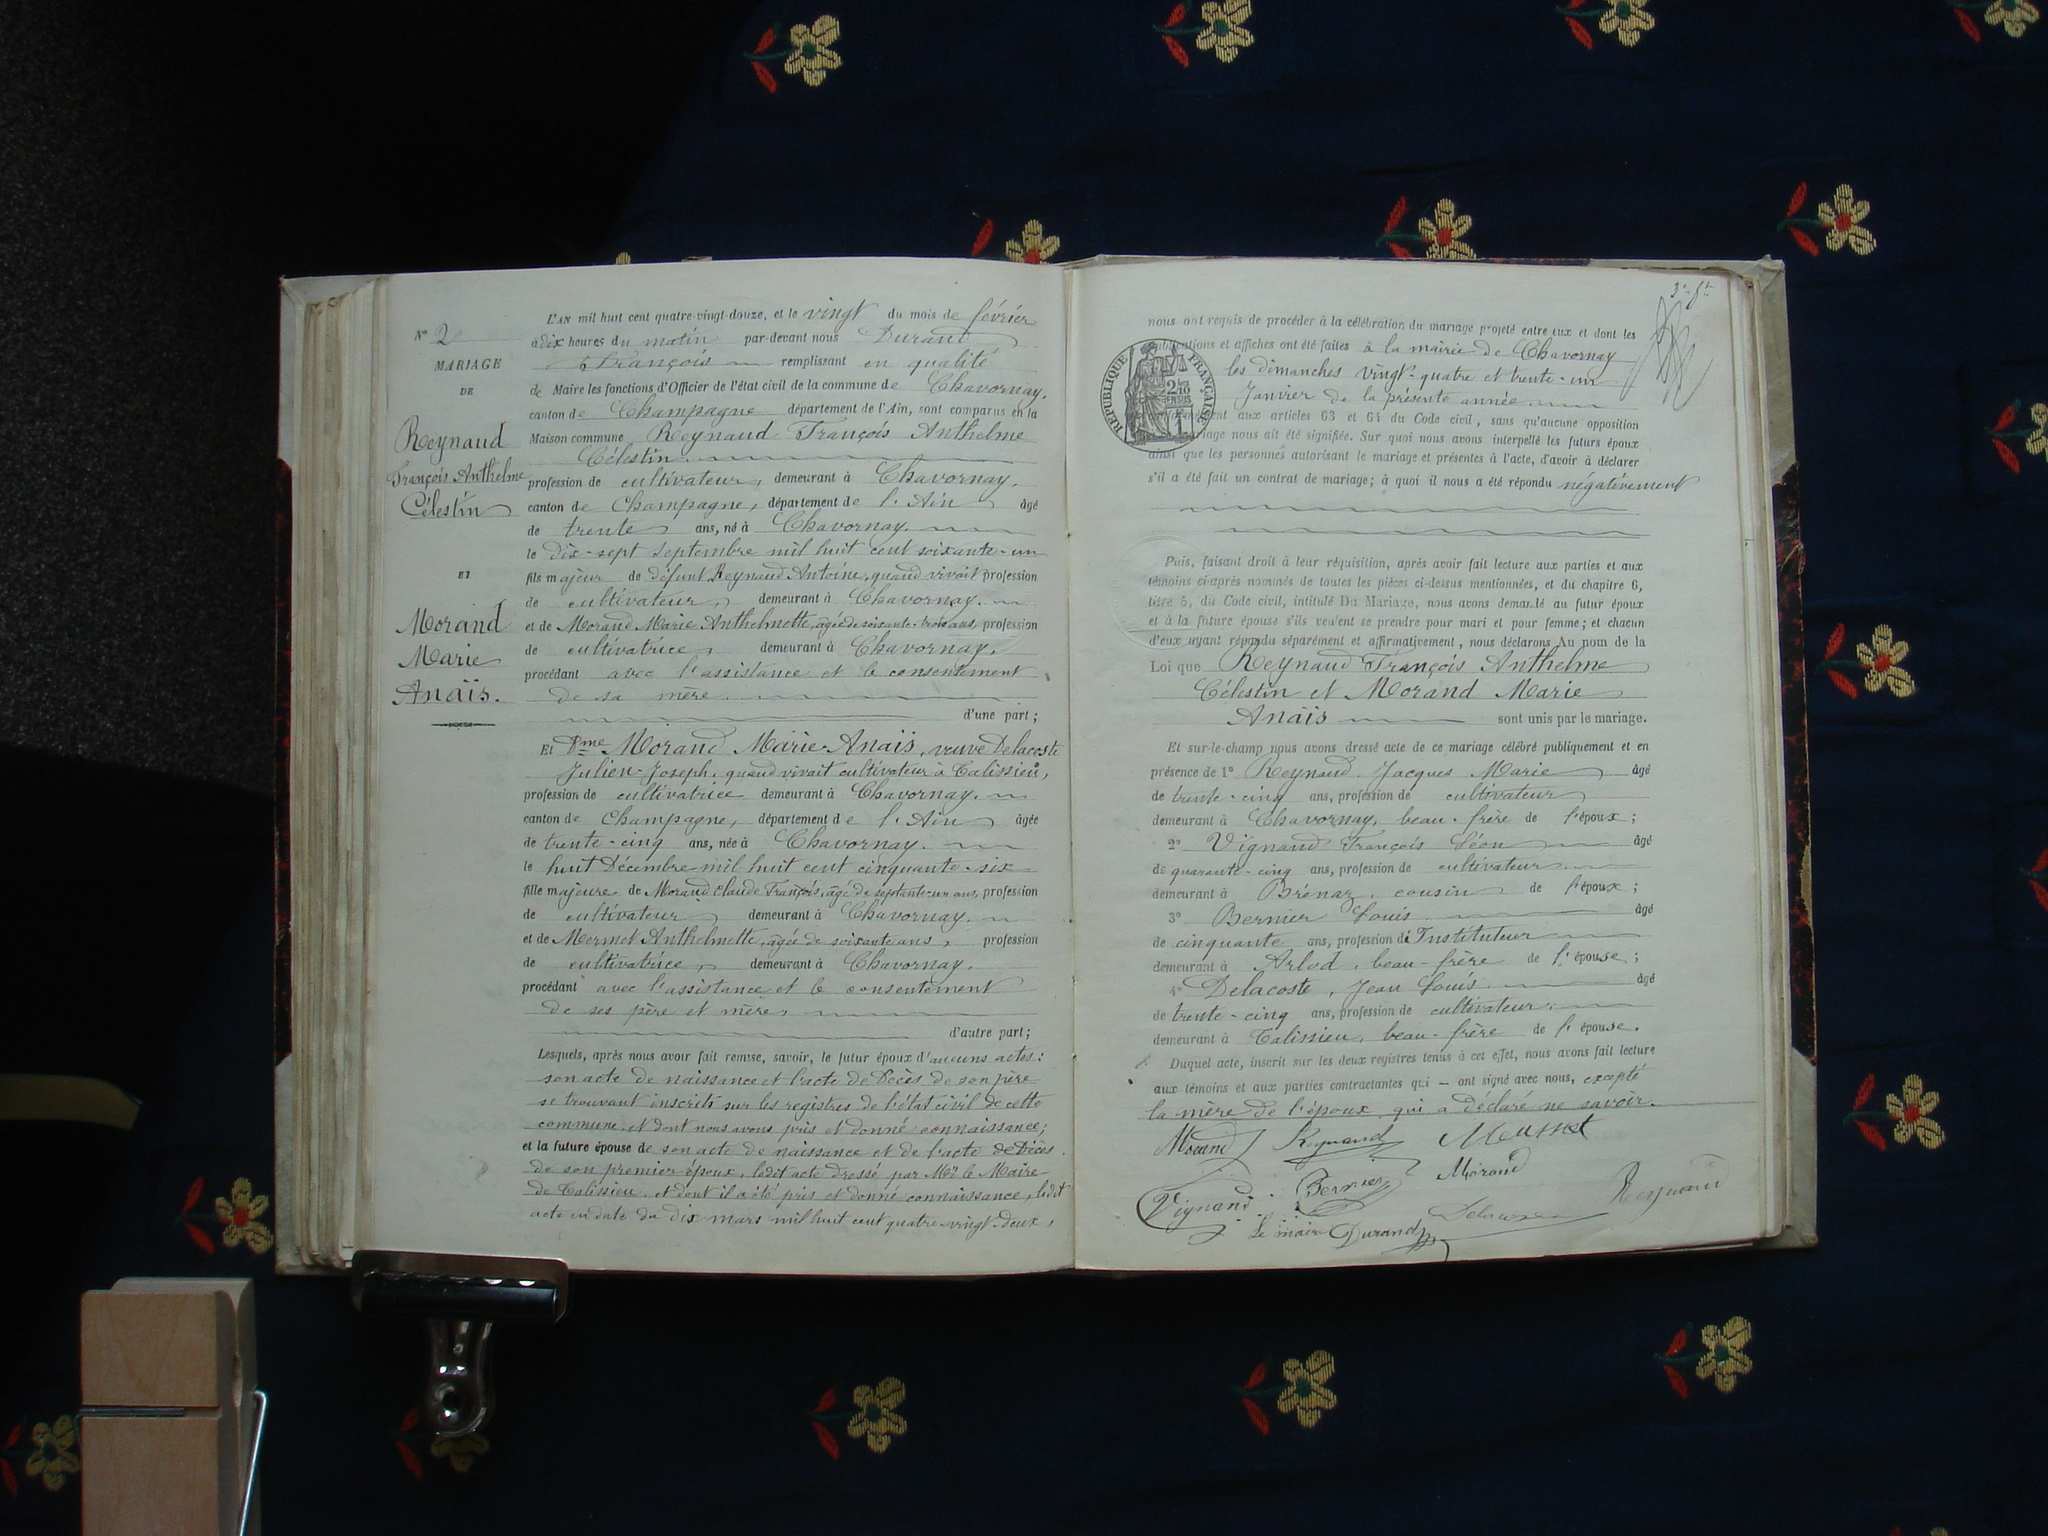 L'AN mil huit cent quatre-vingt-douze, et le vingt du mois de février
à dix heures du matin par-devant nous Durand
François remplissant en qualité
de Maire les fonctions d'Officier de l'état civil de la commune de Chavornay,
canton de Champagne département de l'Ain, sont comparus en la
Maison commune Reynaud François Anthelme
Célestin
profession de cultivateur, demeurant à Chavornay,
canton de Champagne, département de l'Ain âgé
de trente ans, né à Chavornay,
le dix-sept Septembre mil huit cent soixante-un
fils majeur de défunt Reynaud Antoine, quand vivait profession
de cultivateur, demeurant à Chavornay,
et de Morand Marie Anthelmette, agée de soixante-trois ans, profession
de cultivatrice, demeurant à Chavornay,
procédant avec l'assistance et le consentement
de sa mère
d'une part;
Et Dme Morand Marie-Anaïs, veuve Delacoste
Julien-Joseph, quand vivait cultivateur à Talissieu,
profession de cultivatrice demeurant à Chavornay,
canton de Champagne, département de l'Ain âgée
de trente-cinq ans, née à Chavornay,
le huit Décembre mil huit cent cinquante-six
fille majeure de Morand Claude François, âgé de septante-un ans, profession
de cultivateur demeurant à Chavornay,
et de Mermet Anthelmette, agée de soixante ans, profession
de cultivatrice, demeurant à Chavornay,
procédant avec l'assistance et le consentement
de ses père et mère,
d'autre part;
Lesquels, après nous avoir fait remise, savoir, le futur époux d'aucuns actes:
son acte de naissance et l'acte de Décès de son père
se trouvant inscrits sur les registres de l'état civil de cette
commune, et dont nous avons pris et donné connaissance;
et la future épouse de son acte de naissance et de l'acte de Décès
de son premier époux, ledit acte dressé par Mr le Maire
de Talissieu, et dont il a été pris et donné connaissance, ledit
acte en date du dix mars mil huit cent quatre-vingt-deux,
N° 2
MARIAGE
DE
Reynaud
François Anthelme
Célestin
ET
Morand
Marie
Anaïs.
nous ont requis de procéder à la célébration du mariage projeté entre eux et dont les
publications et affiches ont été faites à la mairie de Chavornay
les dimanches vingt-quatre et trente-un
Janvier de la présente année
aux articles 63 et 64 du Code civil, sans qu'aucune opposition
mariage nous ait été signifiée. Sur quoi nous avons interpellé les futurs époux
ainsi que les personnes autorisant le mariage et présentes à l'acte, d'avoir à déclarer
s'il a été fait un contrat de mariage; à quoi il nous a été répondu négativement
RÉPUBLIQUE FRANÇAISE
2/10 EN SUS
Puis, faisant droit à leur réquisition, après avoir fait lecture aux parties et aux
témoins ci-après nommés de toutes les pièces ci-dessus mentionnées, et du chapitre 6,
titre 5, du Code civil, intitulé Du Mariage, nous avons demandé au futur époux
et à la future épouse s'ils veulent se prendre pour mari et pour femme; et chacun
d'eux ayant répondu séparément et affirmativement, nous déclarons Au nom de la
Loi que Reynaud François Anthelme
Célestin et Morand Marie
Anaïs sont unis par le mariage.
Et sur-le-champ nous avons dressé acte de ce mariage célébré publiquement et en
présence de 1° Reynaud Jacques Marie âgé
de trente-cinq ans, profession de cultivateur
demeurant à Chavornay, beau-frère de l'époux;
2° Vignand François Léon âgé
de quarante-cinq ans, profession de cultivateur
demeurant à Brénaz, cousin de l'époux;
3° Bernier Louis âgé
de cinquante ans, profession d'Instituteur
demeurant à Arlod, beau-frère de l'épouse;
4° Delacoste, Jean Louis âgé
de trente-cinq ans, profession de cultivateur,
demeurant à Talissieu, beau-frère de l'épouse.
Duquel acte, inscrit sur les deux registres tenus à cet effet, nous avons fait lecture
aux témoins et aux parties contractantes qui - ont signé avec nous, excepté
la mère de l'époux qui a déclaré ne savoir.
Morand Reynaud Mermet
Vignand Bernier Morand
Reynaud
Le maire Durand